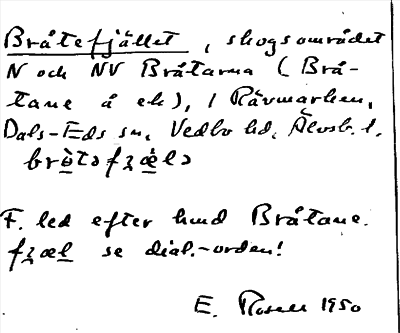 Bråtefjället, skogsområdet
N och NV Bråtarna (Brå-
tane å ek), i Rävmarken,
Dals-Eds sn, Vedbo hd, Älvsb. l.
brò̤təfʒæ̤lə
F. led efter hmd Bråtane.
fʒæl se dial.-orden!
E. Rosell 1950